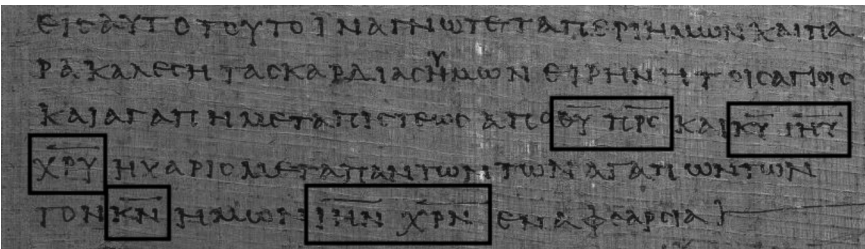 ειϲ αυτο τουτο ϊνα γνωτε τα περι ημων και πα
ρακαλεϲη ταϲ καρδιαϲ ημων ειρηνη τοιϲ αγιοιϲ
και αγαπη μετα πιϲτεωϲ απο θ̅υ̅ π̅ρ̅ϲ̅ και κ̅υ̅ ι̅η̅υ̅
χ̅ρ̅υ̅ η χαριϲ μετα παντων των αγαπωντων
τον κ̅ν̅ ημων ι̅η̅ν̅ χ̅ρ̅ν̅ εν αφθαρϲια